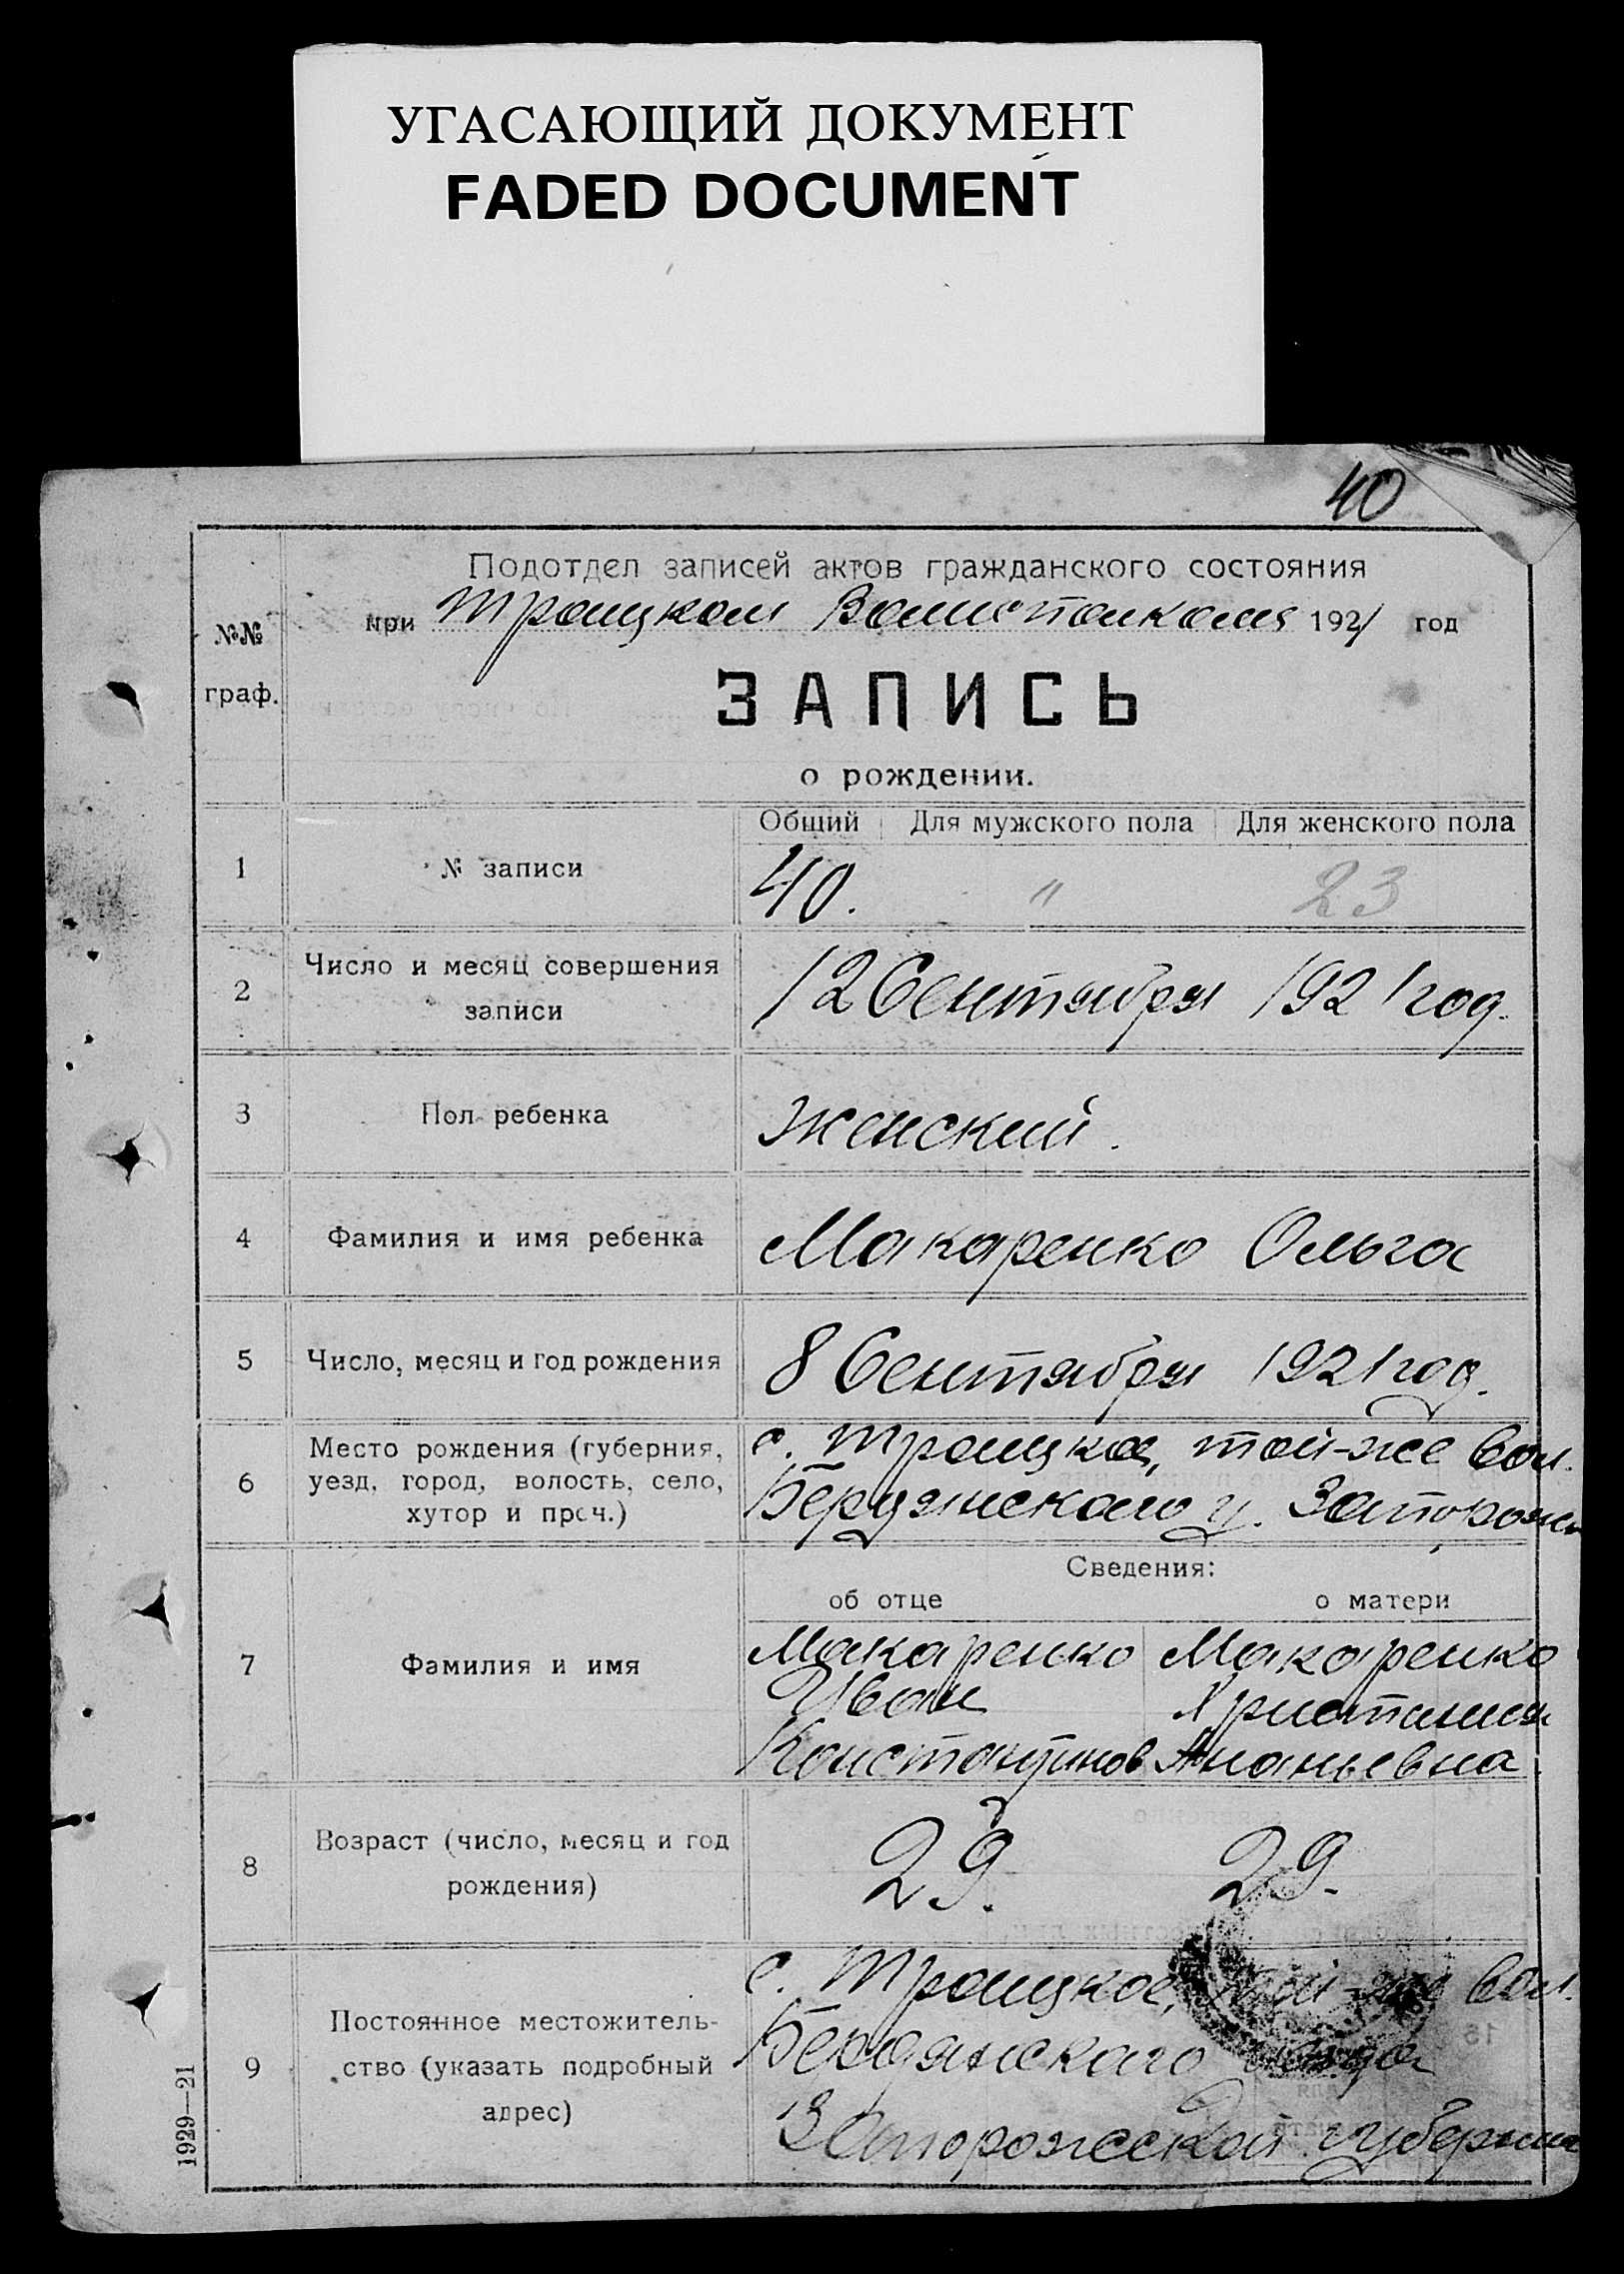 УГАСАЮЩИЙ ДОКУМЕНТ
FADED DOCUMENT
40
Подотдел записей актов гражданского состояния
при Троицком Волисполкоме 1921 год
№№
граф.
ЗАПИСЬ
о рождении.
Общий Для мужского пола Для женского пола
1 № записи 40. " 23
2 Число и месяц совершения
записи
12 Сентября 1921 год.
3 Пол ребенка Женский.
4 Фамилия и имя ребенка Макаренко Ольга
5 Число, месяц и год рождения 8 Сентября 1921 год.
6 Место рождения (губерния,
уезд, город, волость, село,
хутор и проч.)
с. Троицкое, той-же вол.
Бердянского у. Запорож
Сведения:
об отце о матери
7 Фамилия и имя
Макаренко Макаренко
Иван Христиния
Константинов Ананьевна
8 Возраст (число, месяц и год
рождения)
29. 29.
9 Постоянное местожитель-
ство (указать подробный
адрес)
с. Троицкое, той-же вол.
Бердянского уезда
Запорожской губернии
1929—21